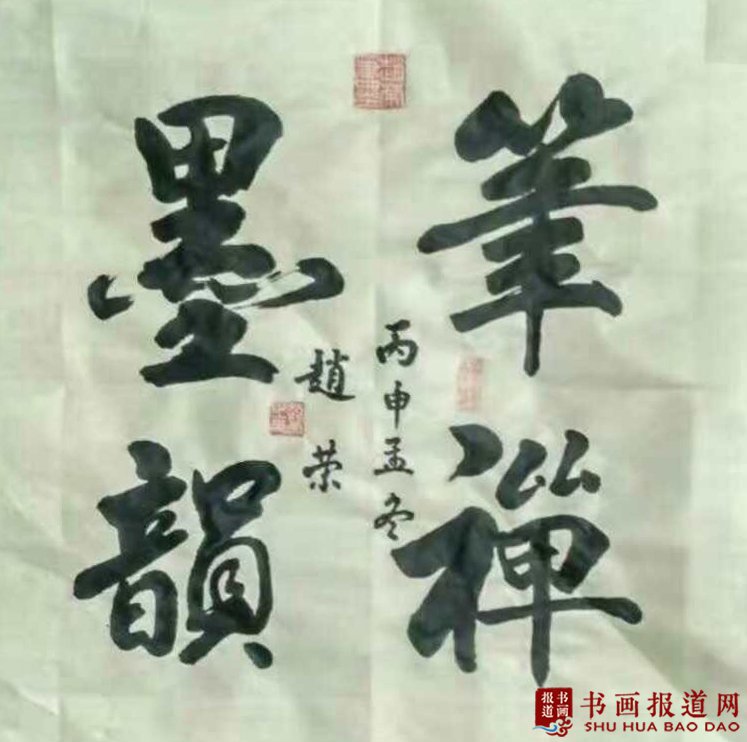 筆禪
墨韻
丙申孟冬
趙荣
报道
书画
书画报道网
SHU HUA BAO DAO